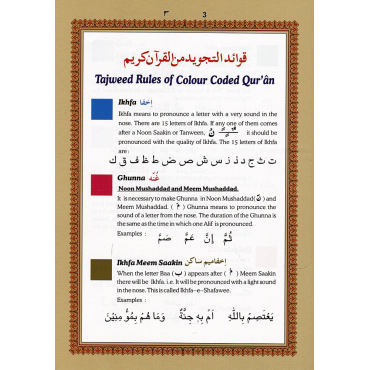 ٣ 3
قوائد التجويد من القرآن كريم
Tajweed Rules of Colour Coded Qur'ân
Ikhfa اِخفا
Ikhfa means to pronounce a letter with a very sound in the
nose. There are 15 letters of Ikhfa. If any one of them comes
after a Noon Saakin or Tanween, نْ it should be
pronounced with the quality of Ikhfa. The 15 letters of Ikhfa
are :
ت ث ج د ذ ز س ش ص ض ط ظ ف ق ك
Ghunna غُنّه
Noon Mushaddad and Meem Mushaddad.
It is necessary to make Ghunna in Noon Mushaddad( نّ ) and
Meem Mushaddad. ( مّ ) Ghunna means to pronounce the
sound of a letter from the nose. The duration of the Ghunna is
the same as the time in which one Alif is pronounced.
Examples :
ثُمَّ اِنَّ عَمَّ ضَمَّ
Ikhfa Meem Saakin اِخفامیم ساکن
When the letter Baa ( ب ) appears after ( مْ ) Meem Saakin
there will be Ikhfa. i.e. It will be pronounced with a light sound
in the nose. This is called Ikhfa-e-Shafawee.
Examples :
يَعْتَصِمْ بِاللّٰهِ اَمْ بِهٖ جِنَّةٌ وَمَا هُمْ بِمُؤْمِنِيْنَ